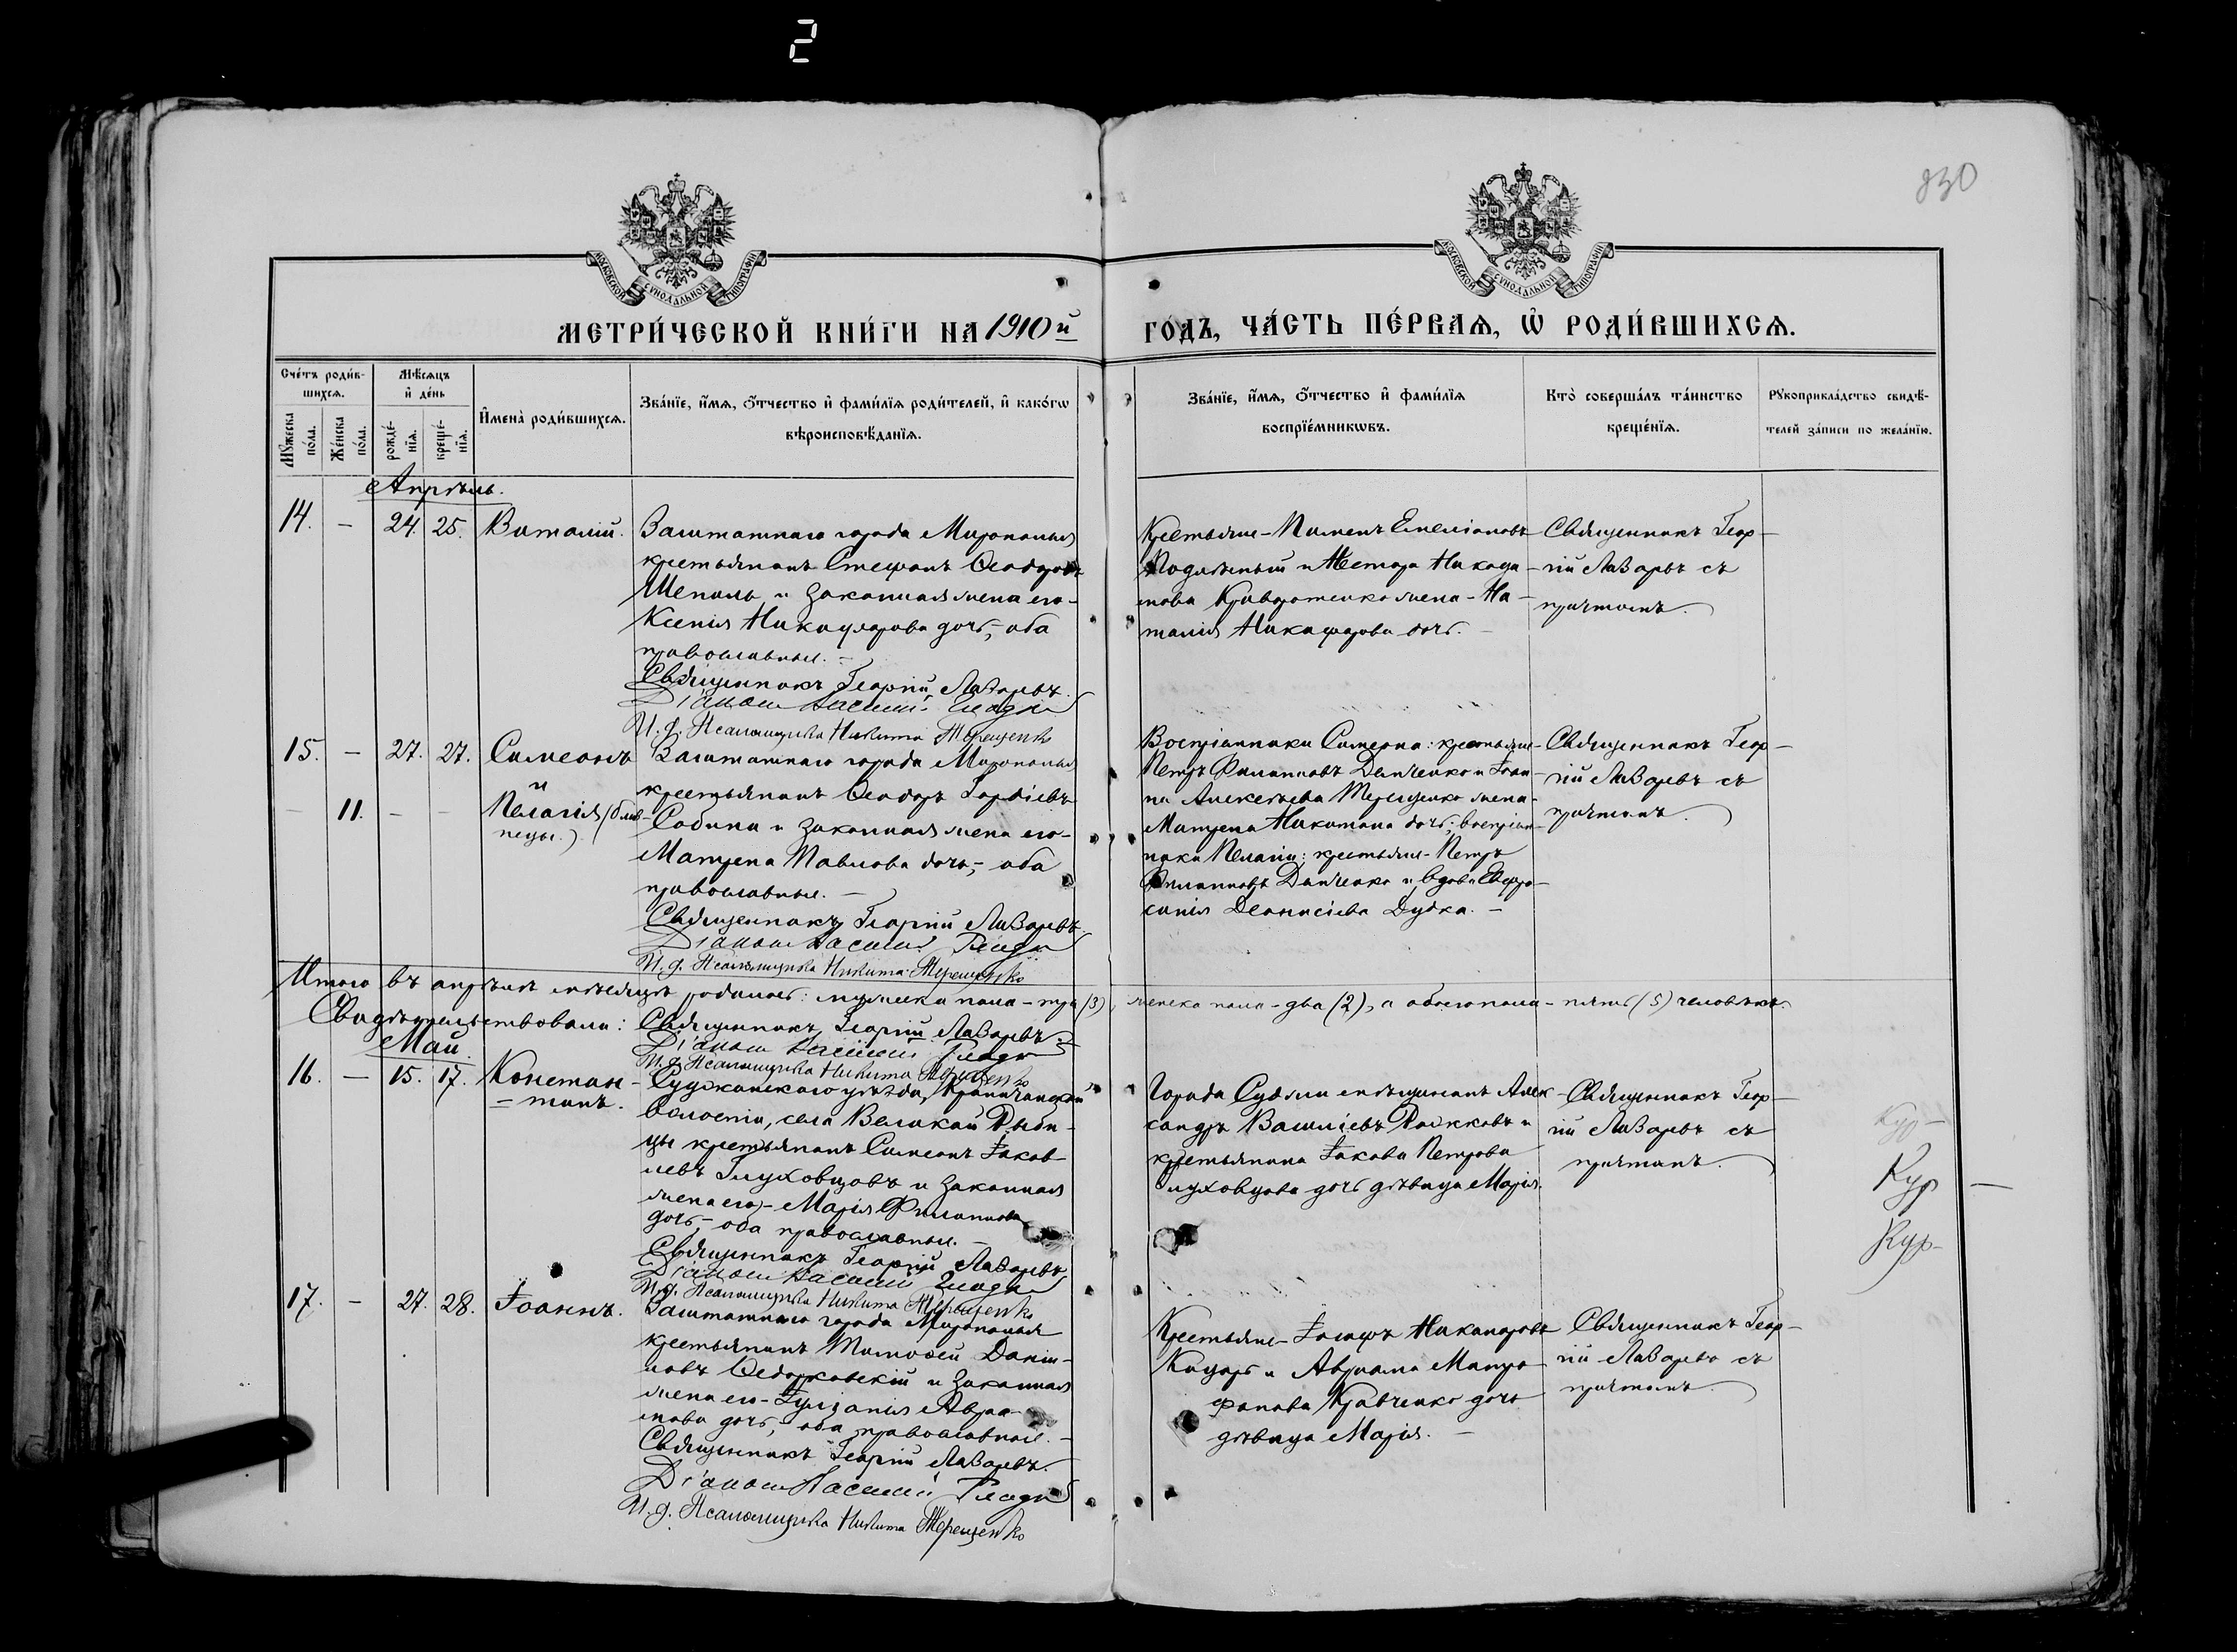 2
830
МОСКОВСКОЙ СѴНОДАЛЬНОЙ ТИПОГРАФІИ
МОСКОВСКОЙ СѴНОДАЛЬНОЙ ТИПОГРАФІИ
МЕТРИ́ЧЕСКОЙ КНИ́ГИ НА 1910й
ГО́ДЪ, ЧА́СТЬ ПЕ́РВАѦ, Ѡ҆ РОДИ́ВШИХСѦ.
Сче́тъ роди́в-
шихсѧ.
Мꙋ́жеска по́ла.
Же́нска по́ла.
Мѣ́сѧцъ
и҆ де́нь
рожде́-
нїѧ.
креще́-
нїѧ.
И҆мена̀ роди́вшихсѧ.
Зва́нїе, и҆́мѧ, ѻ҆́тчество и҆ фами́лїѧ роди́телей, и҆ како́гѡ
вѣроисповѣ́данїѧ.
Зва́нїе, и҆́мѧ, ѻ҆́тчество и҆ фами́лїѧ
воспрїе́мникѡвъ.
Кто̀ соверша́лъ та́инство
креще́нїѧ.
Рꙋкоприкла́дство свидѣ́-
телей за́писи по жела́нїю.
Апрѣль.
14. — 24. 25. Виталій.
Заштатнаго города Мирополья
крестьянинъ Стефанъ Ѳеодоровъ
Шепиль и законная жена его-
Ксенія Никифорова дочь, оба
православные. —
Священникъ Георгій Лазаревъ.
Діаконъ Василій Гладкі
И. д. Псаломщика Никита Терещенко
Крестьяне - Пименъ Емеліановъ
Подлѣсный и Нестора Никоди-
мова Криворотенко жена - На-
талія Никифорова дочь. —
Священникъ Геор-
гій Лазаревъ съ
причтомъ.
15. — 27. 27. Симеонъ
и
— 11. — — Пелагія (близ-
нецы.)
Заштатнаго города Мирополья
крестьянинъ Ѳеодоръ Гордіевъ
Собина и законная жена его-
Матрена Павлова дочь, оба
православные. —
Священникъ Георгій Лазаревъ.
Діаконъ Василій Гладкі
И. д. Псаломщика Никита Терещенко
Воспріемники Симеона: крестьяне-
Петръ Филипповъ Демченко и Іоан-
на Алексѣева Терещенко жена-
Матрена Никитина дочь; воспріем-
ники Пелагіи: крестьяне - Петръ
Филипповъ Демченко и вдова Евфро-
синія Діонисіева Дудка. —
Священникъ Геор-
гій Лазаревъ съ
причтомъ.
Итого въ апрѣлѣ мѣсяцѣ родилось: мужска пола - три (3), женска пола - два (2), а обоего пола - пять (5) человѣкъ.
Свидѣтельствовали: Священникъ Георгій Лазаревъ.
Діаконъ Василій Гладкі
И. д. Псаломщика Никита Терещенко
Май.
16. — 15. 17. Констан-
тинъ.
Суджанскаго уѣзда,
волости, села Великой Рыби-
цы крестьянинъ Симеонъ Іаков-
левъ Глуховцовъ и законная
жена его - Марія Филиппова
дочь, оба православные. —
Священникъ Георгій Лазаревъ.
Діаконъ Василій Гладкі
И. д. Псаломщика Никита Терещенко
Города Суджи мѣщанинъ Алек-
сандръ Васильевъ и
крестьянина Іакова Петрова
Глуховцова дочь дѣвица Марія.
Священникъ Геор-
гій Лазаревъ съ
причтомъ.
Кур —
Кур —
Кур-
17. — 27. 28. Іоаннъ.
Заштатнаго города Мирополья
крестьянинъ Тимоѳей Даніи-
ловъ Ѳедорковскій и законная
жена его - Іуліанія Авраа-
мова дочь, оба православные. —
Священникъ Георгій Лазаревъ.
Діаконъ Василій Гладкі
И. д. Псаломщика Никита Терещенко
Крестьяне - Іосифъ Никаноровъ
Кицарь и Авраама Митро-
фанова Кравченко дочь
дѣвица Марія. —
Священникъ Геор-
гій Лазаревъ съ
причтомъ.